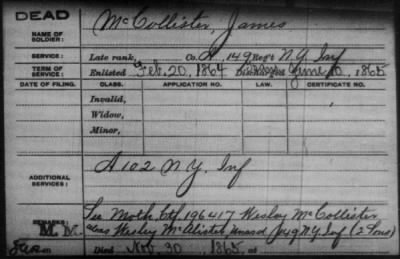 DEAD
NAME OF SOLDIER: McCollister, James
SERVICE: Late rank, Co. A, 149 Reg't N.Y. Inf
TERM OF SERVICE: Enlisted Feb. 20, 1864 Discharged June 10, 1865
DATE OF FILING. CLASS. APPLICATION NO. LAW. CERTIFICATE NO.
Invalid,
Widow,
Minor,
ADDITIONAL SERVICES: A 102 N.Y. Inf
See Moth. Ctf 196417 Wesley McCollister
REMARKS: alias Wesley McAlister, 149 N.Y. Inf (2 Sons)
Died Nov. 30, 1865, at